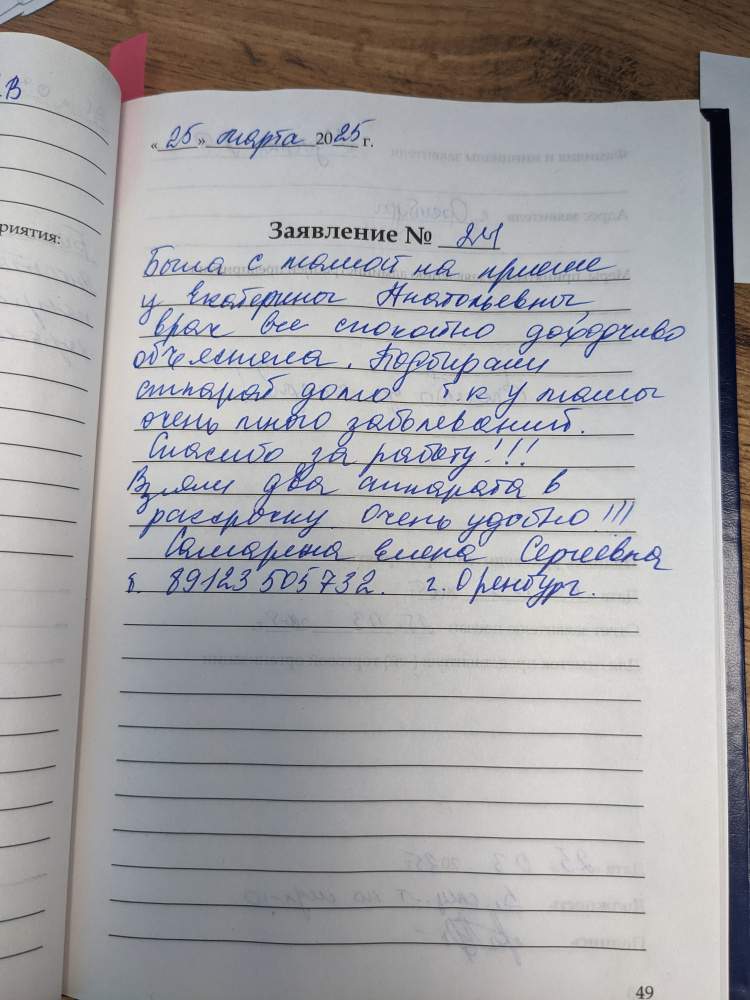 «25» марта 2025 г.
Заявление № 24
Была с мамой на приеме
у Екатерины Анатольевны,
врач все спокойно доходчиво
объяснила. Подбирали
аппарат долго т к у мамы
очень много заболеваний.
Спасибо за работу!!!
Взяли два аппарата в
рассрочку. Очень удобно!!!
Елена Сергеевна
т. 89123505732. г. Оренбург.
49
риятия: